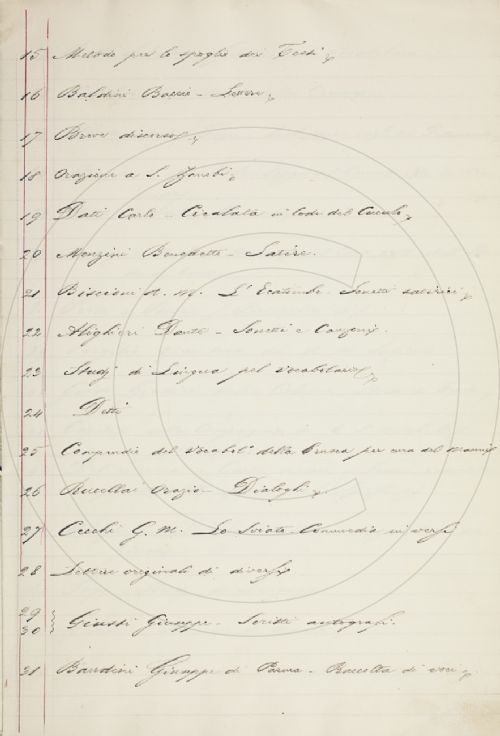 15 Metodo per lo spoglio dei Testi
16 Baldini Baccio - Lettere
17 Breve discorso
18 Orazione a S. Zanobi
19 Dati Carlo - Cicalata in lode del Cuculo
20 Menzini Benedetto - Satire.
21 Biscioni A. M. L'Ecatombe. Sonetti satirici
22 Alighieri Dante - Sonetti e Canzoni.
23 Studj di Lingua pel Vocabolario
24 Detti
25 Compendio del Vocabol° della Crusca per cura del Manni
26 Rucellai Orazio - Dialoghi
27 Cecchi G. M. Lo Sviato. Commedia in versi
28 Lettere originali di diversi
29
30 Giusti Giuseppe - Scritti autografi.
31 Bandini Giuseppe di Parma - Raccolta di voci